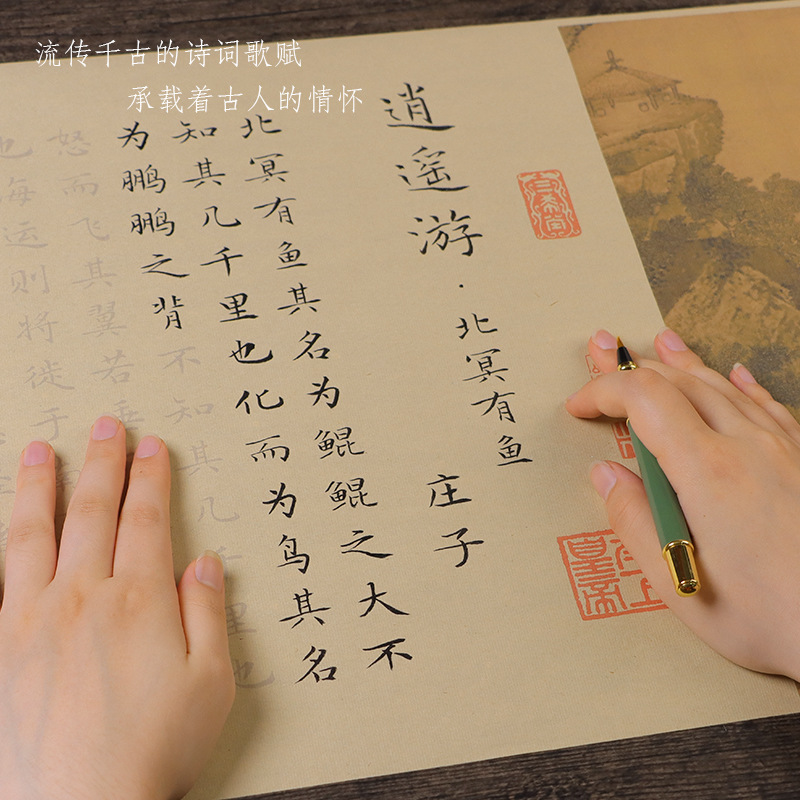 流传千古的诗词歌赋
承载着古人的情怀
三希堂
逍遥游·北冥有鱼
庄子
北冥有鱼其名为鲲鲲之大不
知其几千里也化而为鸟其名
为鹏鹏之背不知其几千里也
怒而飞其翼若垂
也海运则将徙于
皇帝